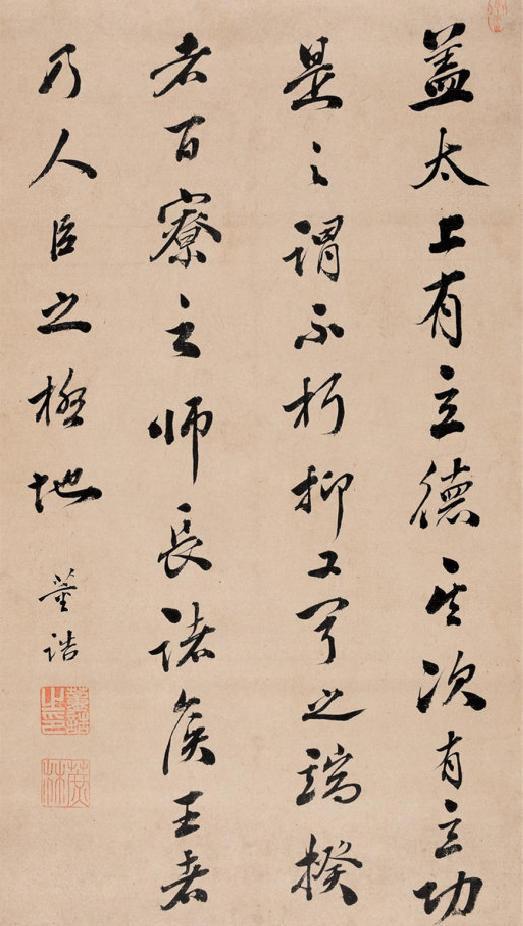 盖太上有立德其次有立功
是之謂不朽抑又聞之端揆
者百寮之師長諸侯王者
乃人臣之極地
董誥
董誥之印
蔗林